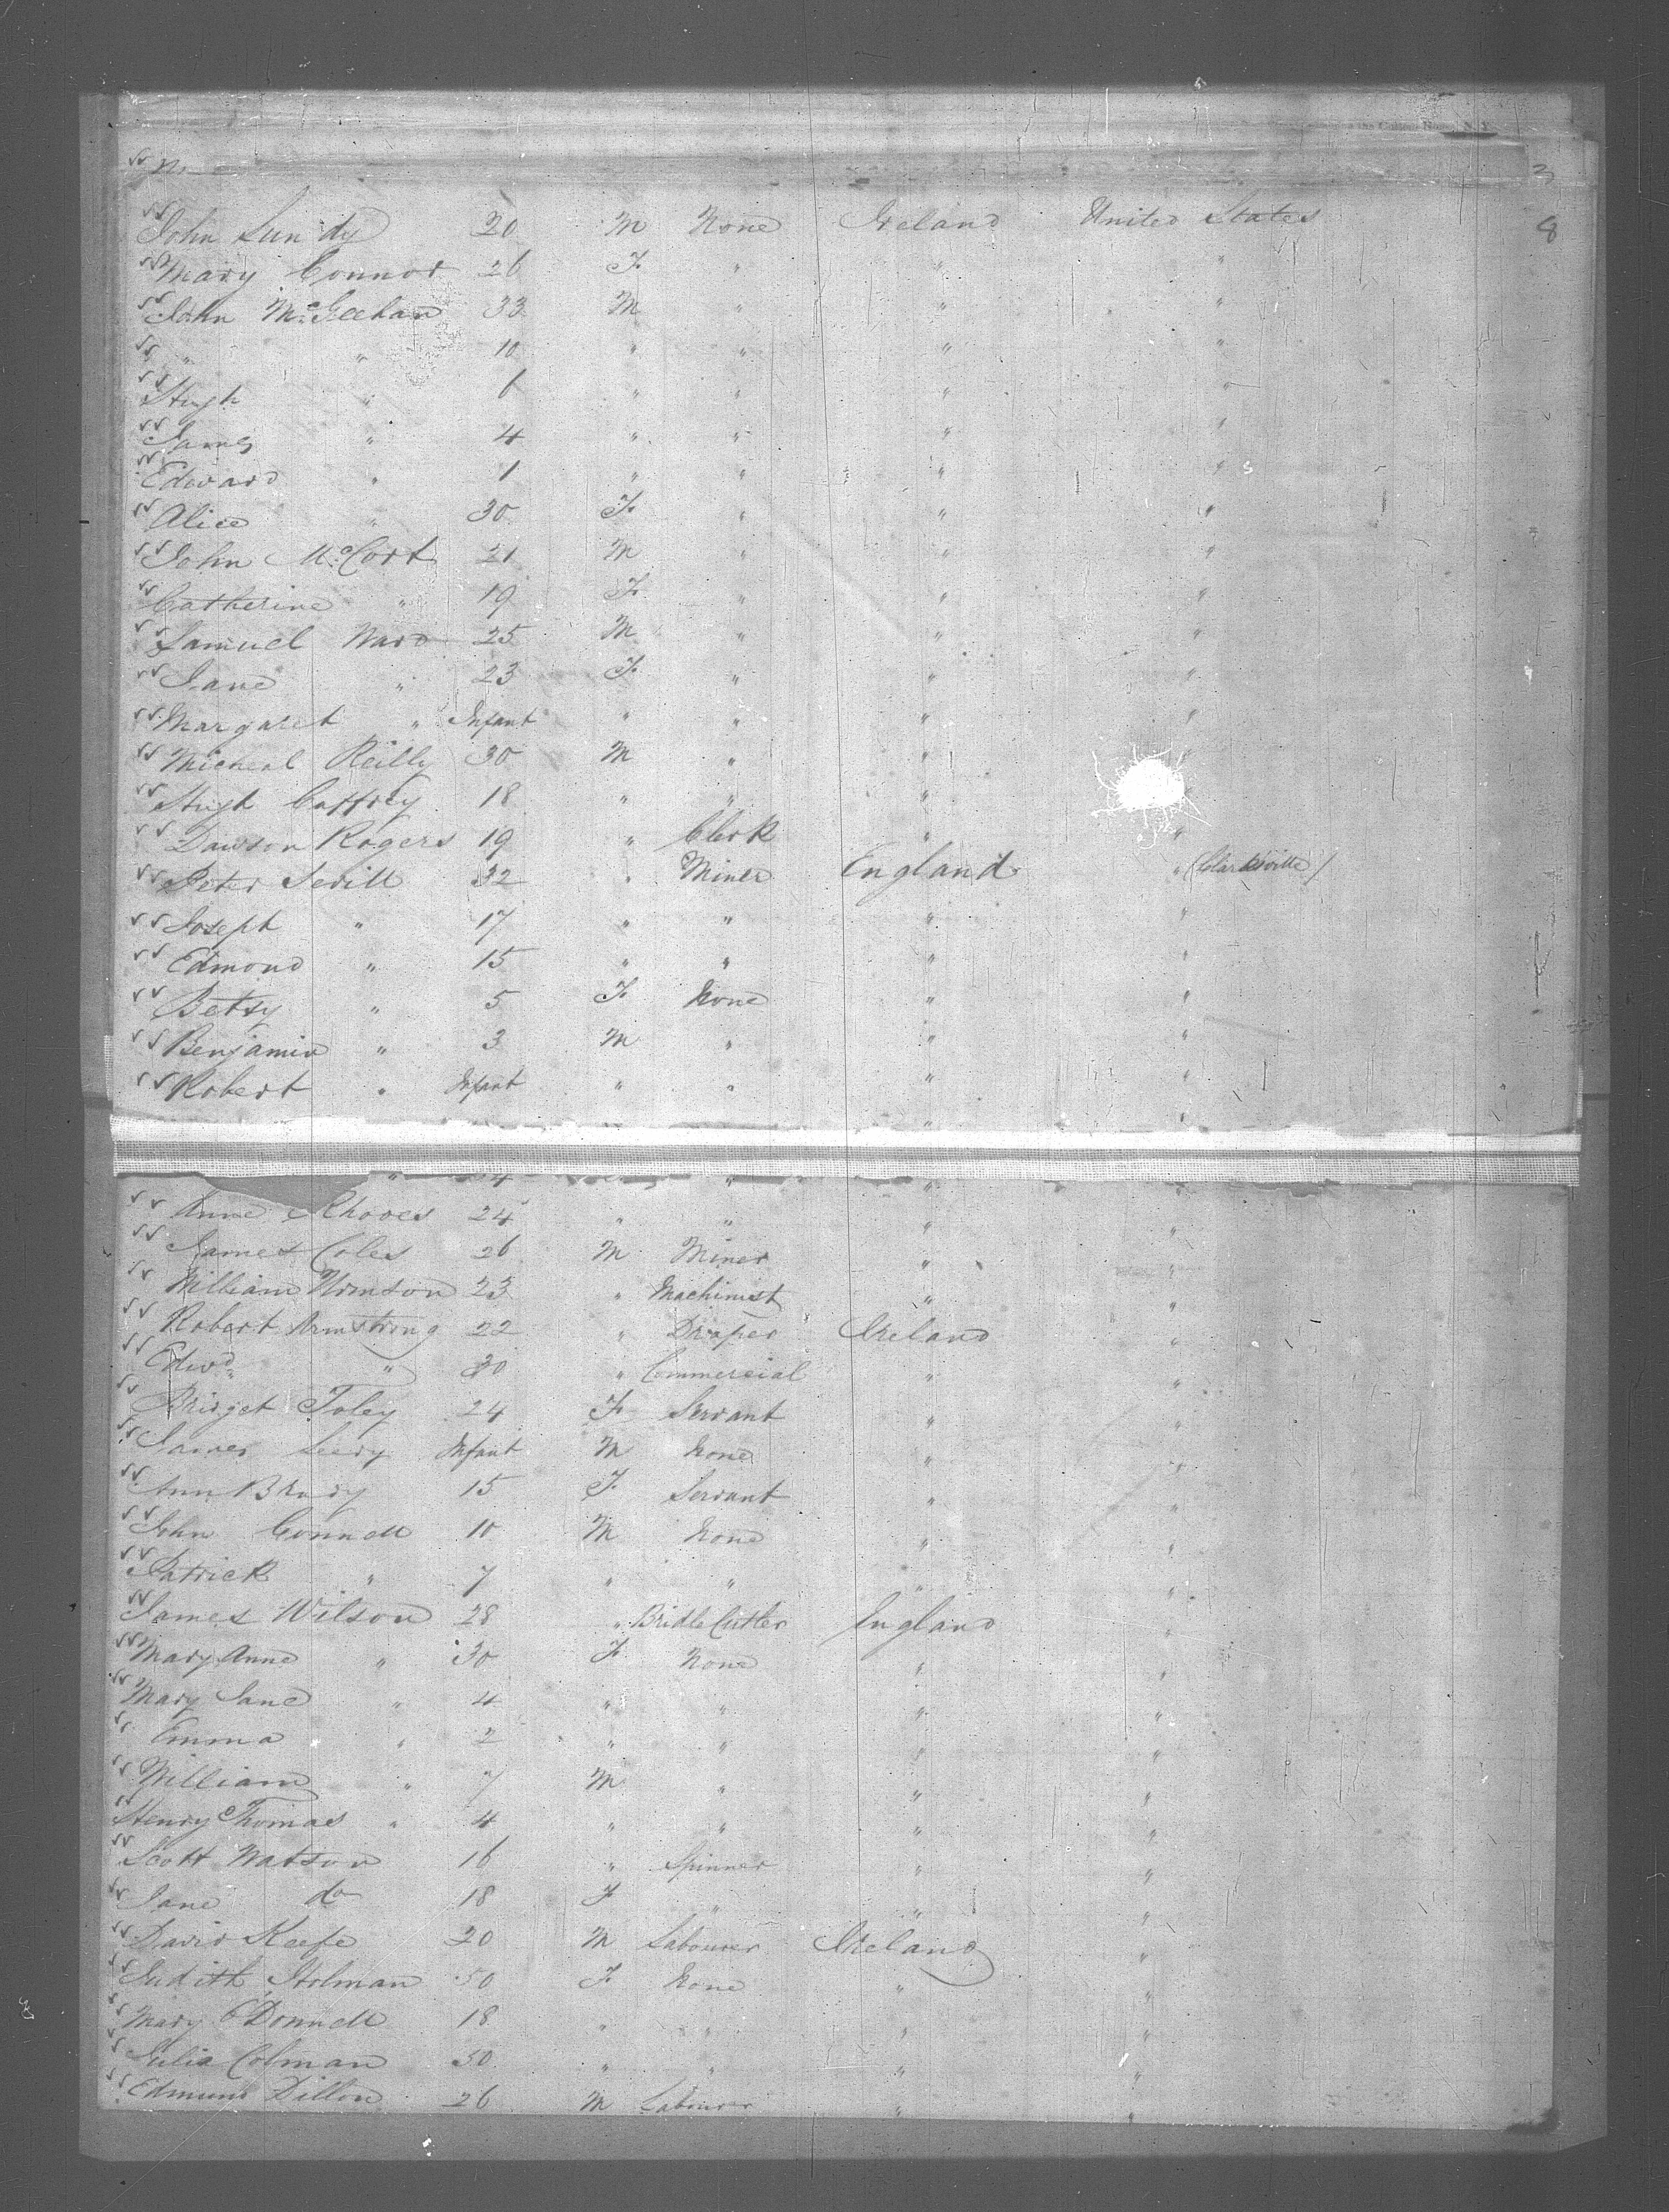 3
John Lundy 20 M None Ireland United States 8
Mary Connor 26 F " " "
John McGeehan 33 M " " "
" " 10 " " " "
Hugh " 6 " " " "
James " 4 " " " "
Edward " 1 " " " "
Alice " 30 F " " "
John McCort 21 M " " "
Catherine " 19 F " " "
Samuel Ward 25 M " " "
Jane " 23 F " " "
Margaret " Infant " " " "
Micheal Reilly 30 M " " "
Hugh Caffrey 18 " " " "
Dawson Rogers 19 " Clerk " "
Peter Sevill 32 " Miner England " (Clarksville)
Joseph " 17 " " " "
Edmond " 15 " " " "
Betsy " 5 F None " "
Benjamin " 3 M " " "
Robert " Infant " " " "
" "
" 24 " "
Anne Rhodes 24 " " " "
James Coles 26 M Miner " "
William 23 " Machinist " "
Robert Armstrong 22 " Draper Ireland "
Edwd " 30 " Commercial " "
Bridget Foley 24 F Servant " "
James Leery Infant M None " "
Ann Brady 15 F Servant " "
John Connell 10 M None " "
Patrick " 7 " " " "
James Wilson 28 " Bridle Cutler England "
Mary Anne " 30 F None " "
Mary Jane " 4 " " " "
Emma " 2 " " " "
William " 7 M " " "
Henry Thomas " 4 " " " "
Scott Watson 16 " Spinner " "
Jane do 18 F " " "
David Keefe 20 M Labourer Ireland "
Judith Holman 50 F None " "
Mary O'Donnell 18 " " " "
Julia Colman 50 " " " "
Edmund Dillon 26 M Labourer " "